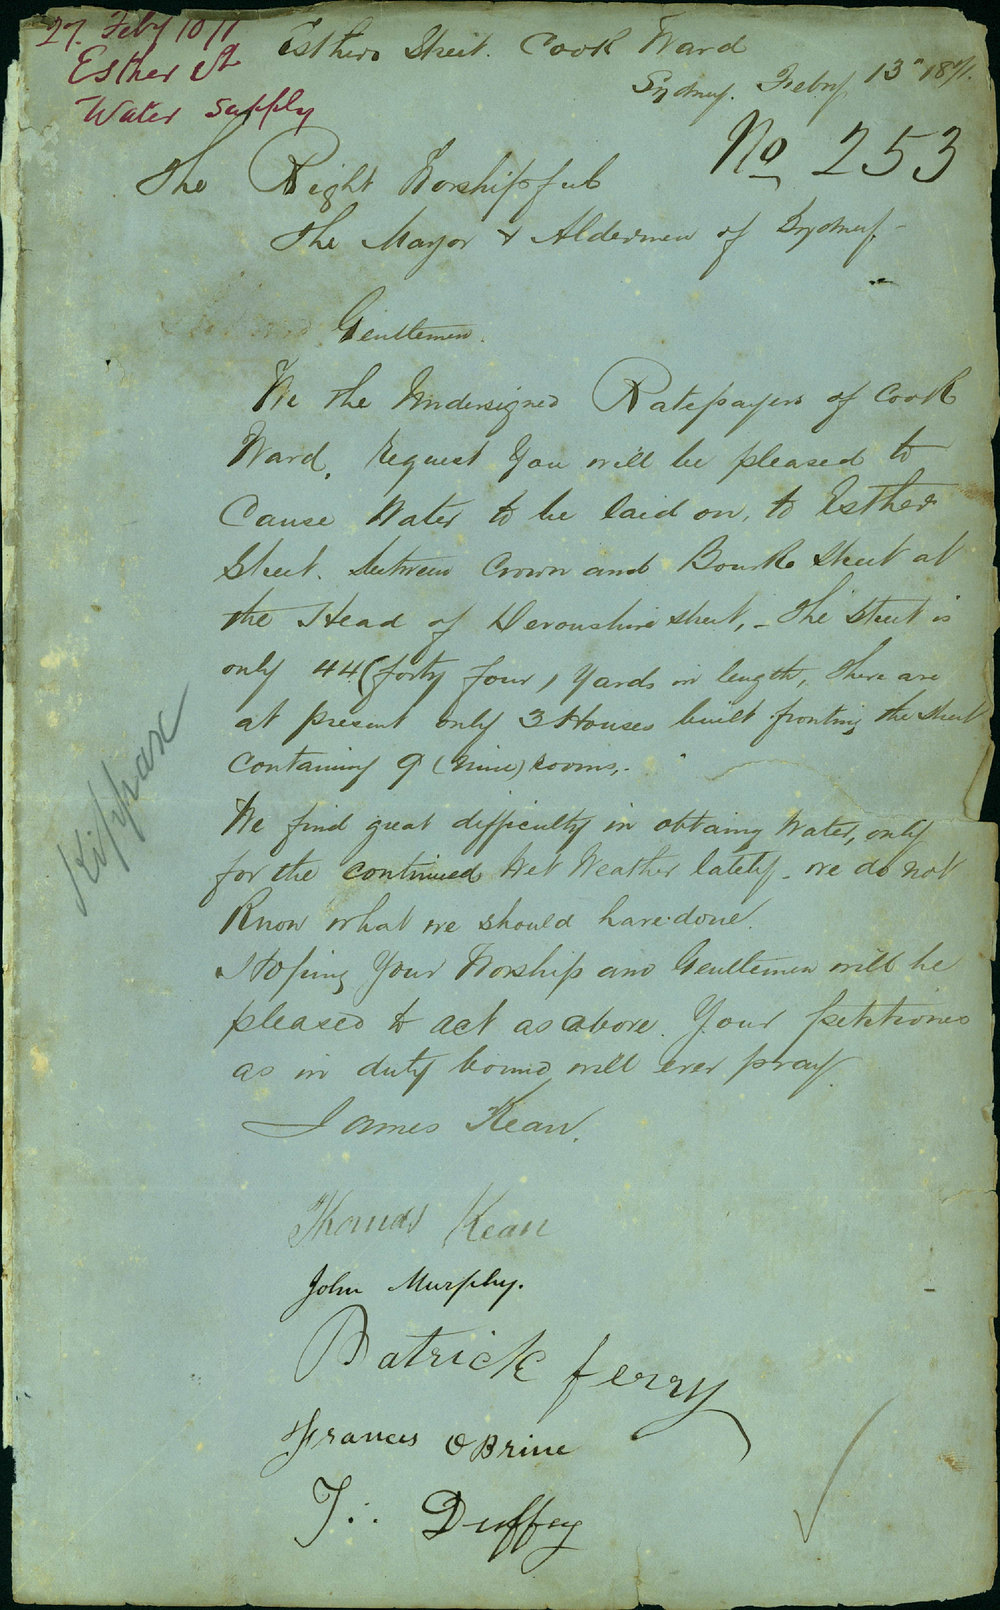 27. Feby 1871
Esther St
Water Supply
Esther Street. Cook Ward
Sydney. Feby 13th 1871.
No 253
The Right Worshipful
The Mayor & Aldermen of Sydney.
Gentlemen.
We the Undersigned Ratepayers of Cook
Ward, request you will be pleased to
Cause Water to be laid on, to Esther
Street. between Crown and Bourke Street at
the Head of Devonshire Street, - The Street is
only 44 (forty four) Yards in length, there are
at present only 3 Houses built fronting the Street
Containing 9 (nine) rooms,.
We find great difficulty in obtaing Water, only
for the continued Wet Weather lately - we do not
Know what we should have done.
Hoping Your Worship and Gentlemen will be
pleased to act as above. Your petitioners
as in duty bound will ever pray
James Kean.
Thomas Kean
John Murphy.
Patrick ferry
Frances OBrine
T.: Duffey
Kippax